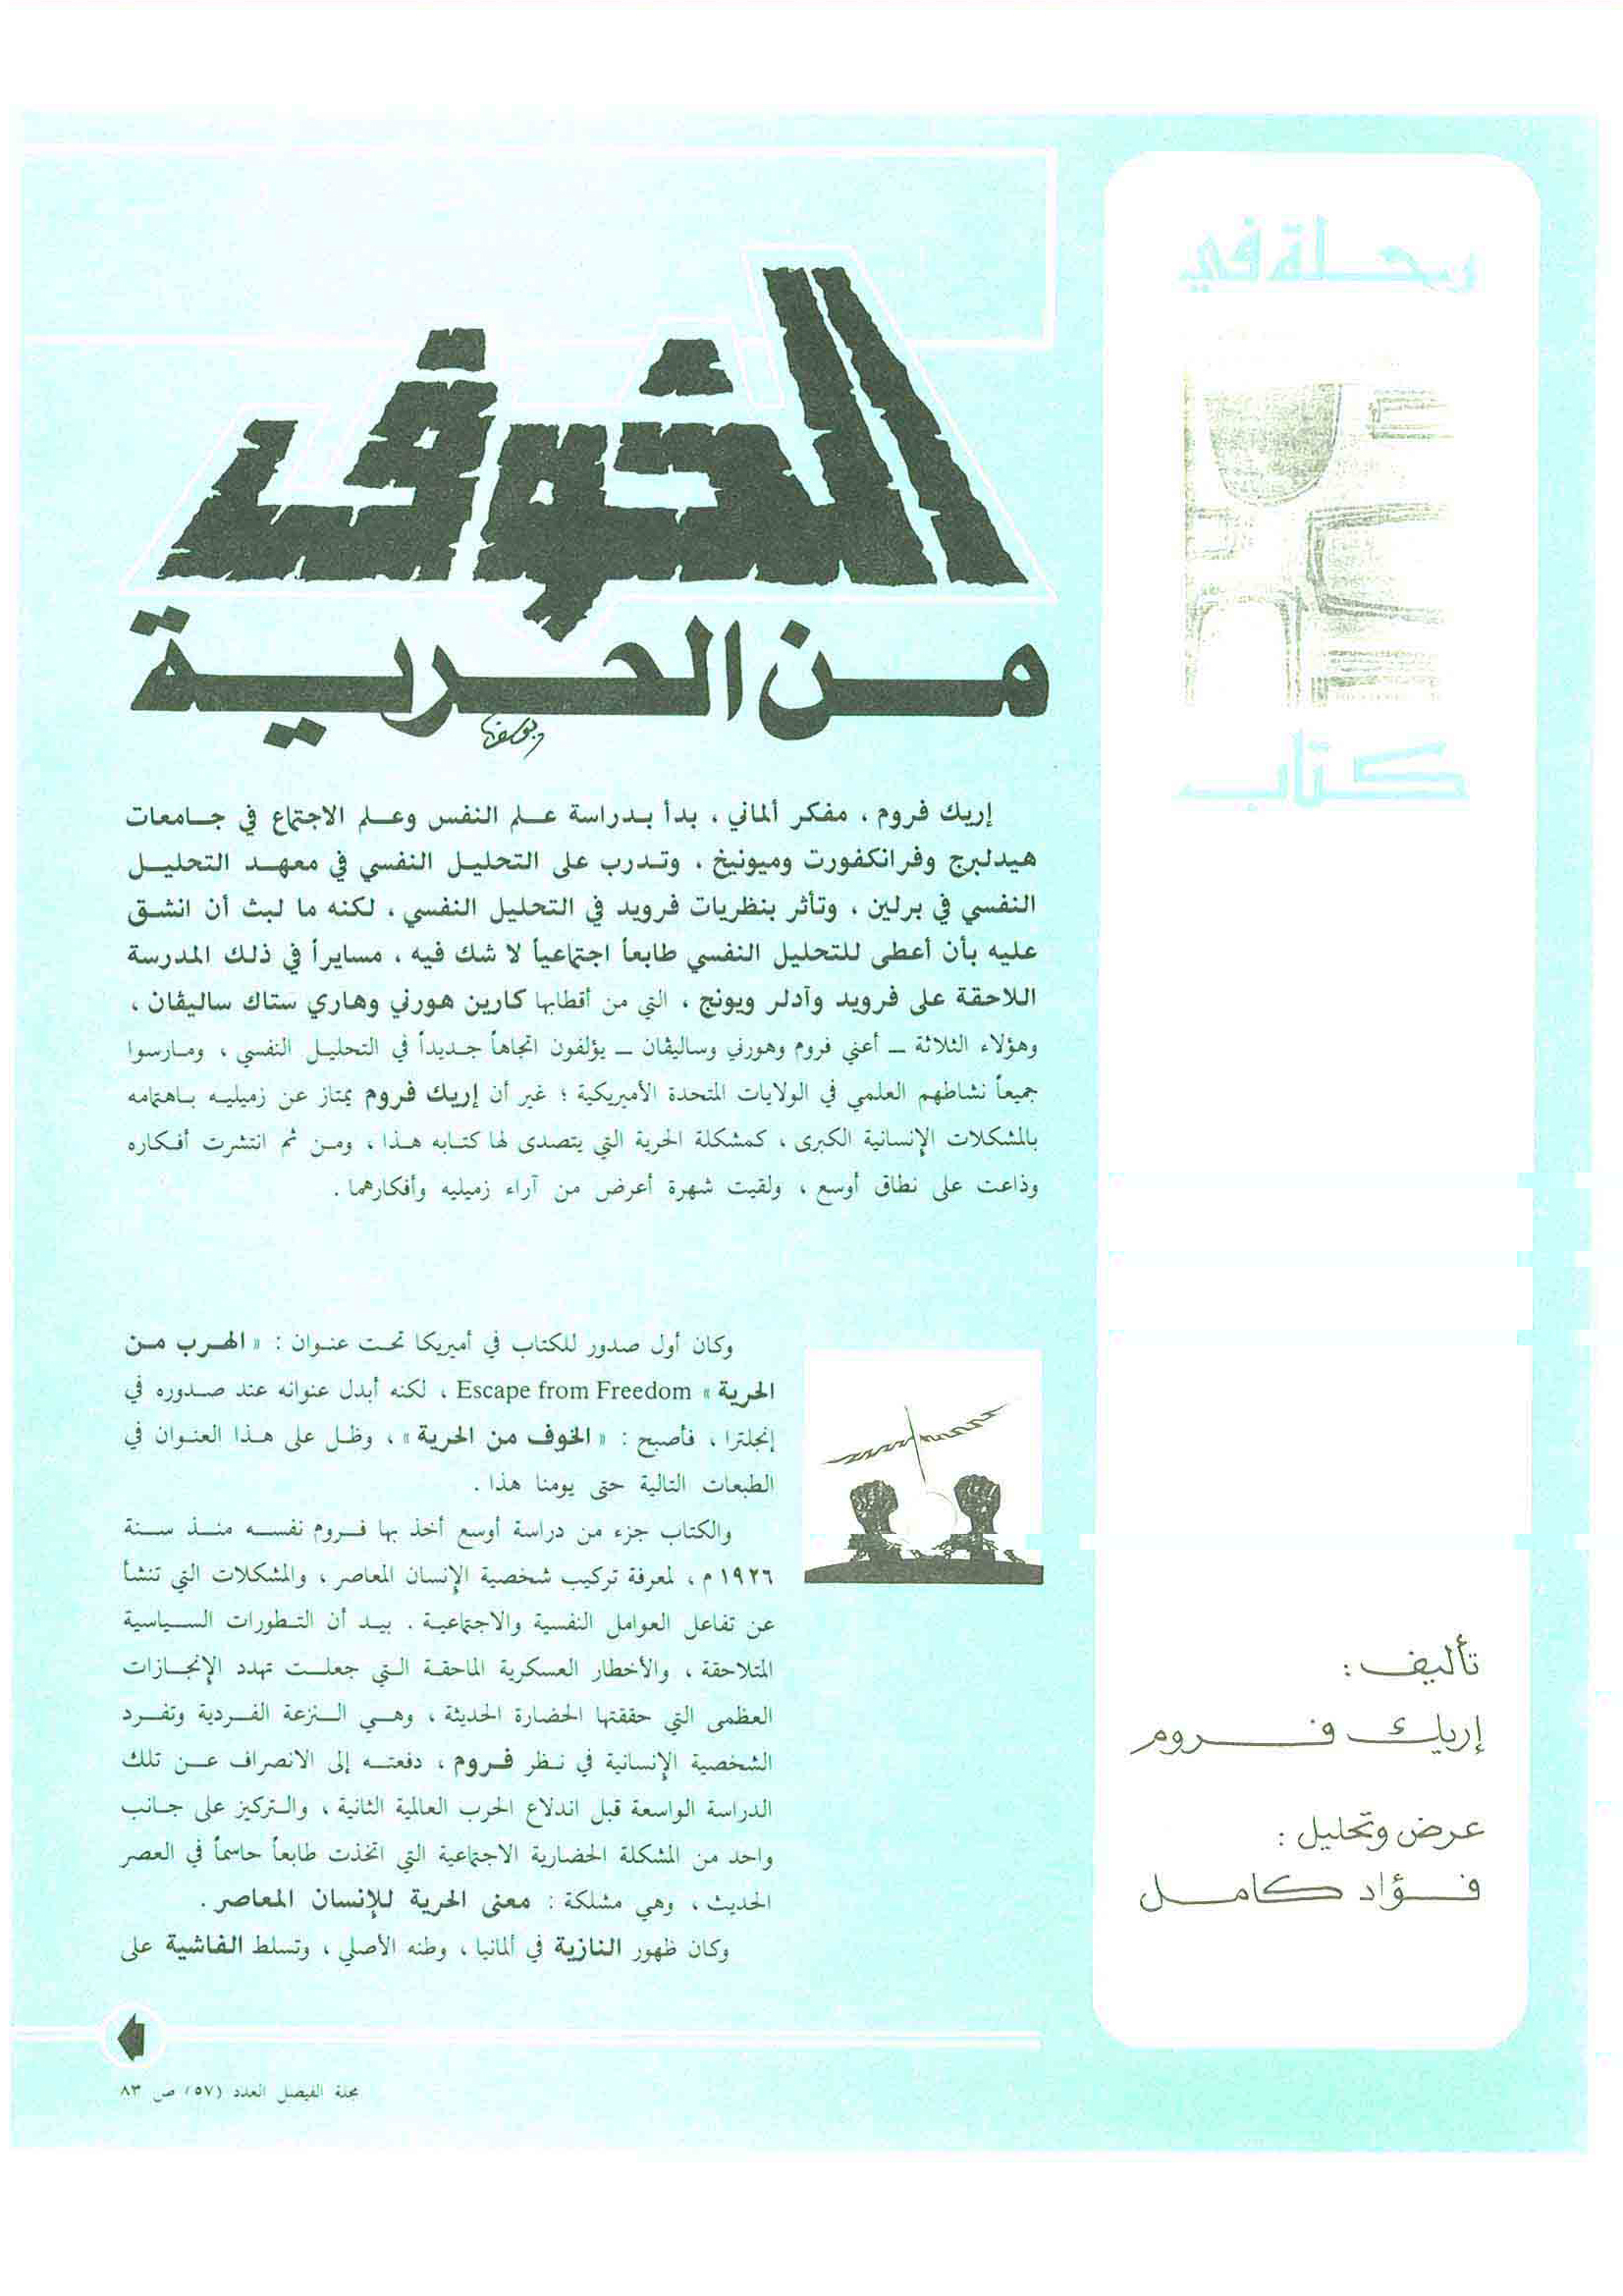 رحلة في
كتاب
الخوف
من الحرية
إريك فروم ، مفكر ألماني ، بدأ بدراسة علم النفس وعلم الاجتماع في جامعات
هيدلبرج وفرانكفورت وميونيخ . وتدرب على التحليل النفسي في معهد التحليل
النفسي في برلين ، وتأثر بنظريات فرويد في التحليل النفسي ، لكنه ما لبث أن انشق
عليه بأن أعطى للتحليل النفسي طابعاً اجتماعياً لا شك فيه ، مسايراً في ذلك المدرسة
اللاحقة على فرويد وآدلر ويونج ، التي من أقطابها كارين هورني وهاري ستاك ساليڤان ،
وهؤلاء الثلاثة – أعني فروم وهورني وساليڤان – يؤلفون اتجاهاً جديداً في التحليل النفسي ، ومارسوا
جميعاً نشاطهم العلمي في الولايات المتحدة الأميريكية ؛ غير أن إريك فروم يمتاز عن زميليه باهتمامه
بالمشكلات الإنسانية الكبرى ، كمشكلة الحرية التي يتصدى لها كتابه هذا ، ومن ثم انتشرت أفكاره
وذاعت على نطاق أوسع ، ولقيت شهرة أعرض من آراء زميليه وأفكارهما .
وكان أول صدور للكتاب في أميريكا تحت عنوان : « الهرب من
الحرية » Escape from Freedom ، لكنه أبدل عنوانه عند صدوره في
إنجلترا ، فأصبح : « الخوف من الحرية » ، وظل على هذا العنوان في
الطبعات التالية حتى يومنا هذا .
والكتاب جزء من دراسة أوسع أخذ بها فروم نفسه منذ سنة
١٩٢٦ م ، لمعرفة تركيب شخصية الإنسان المعاصر ، والمشكلات التي تنشأ
عن تفاعل العوامل النفسية والاجتماعية . بيد أن التطورات السياسية
المتلاحقة ، والأخطار العسكرية الماحقة التي جعلت تهدد الإنجازات
العظمى التي حققتها الحضارة الحديثة ، وهي النزعة الفردية وتفرد
الشخصية الإنسانية في نظر فروم ، دفعته إلى الانصراف عن تلك
الدراسة الواسعة قبل اندلاع الحرب العالمية الثانية ، والتركيز على جانب
واحد من المشكلة الحضارية الاجتماعية التي اتخذت طابعاً حاسماً في العصر
الحديث ، وهي مشلكة : معنى الحرية للإنسان المعاصر .
وكان ظهور النازية في ألمانيا ، وطنه الأصلي ، وتسلط الفاشية على
تأليف :
إريك فروم
عرض وتحليل :
فؤاد كامل
مجلة الفيصل العدد (٥٧) ص ٨٣